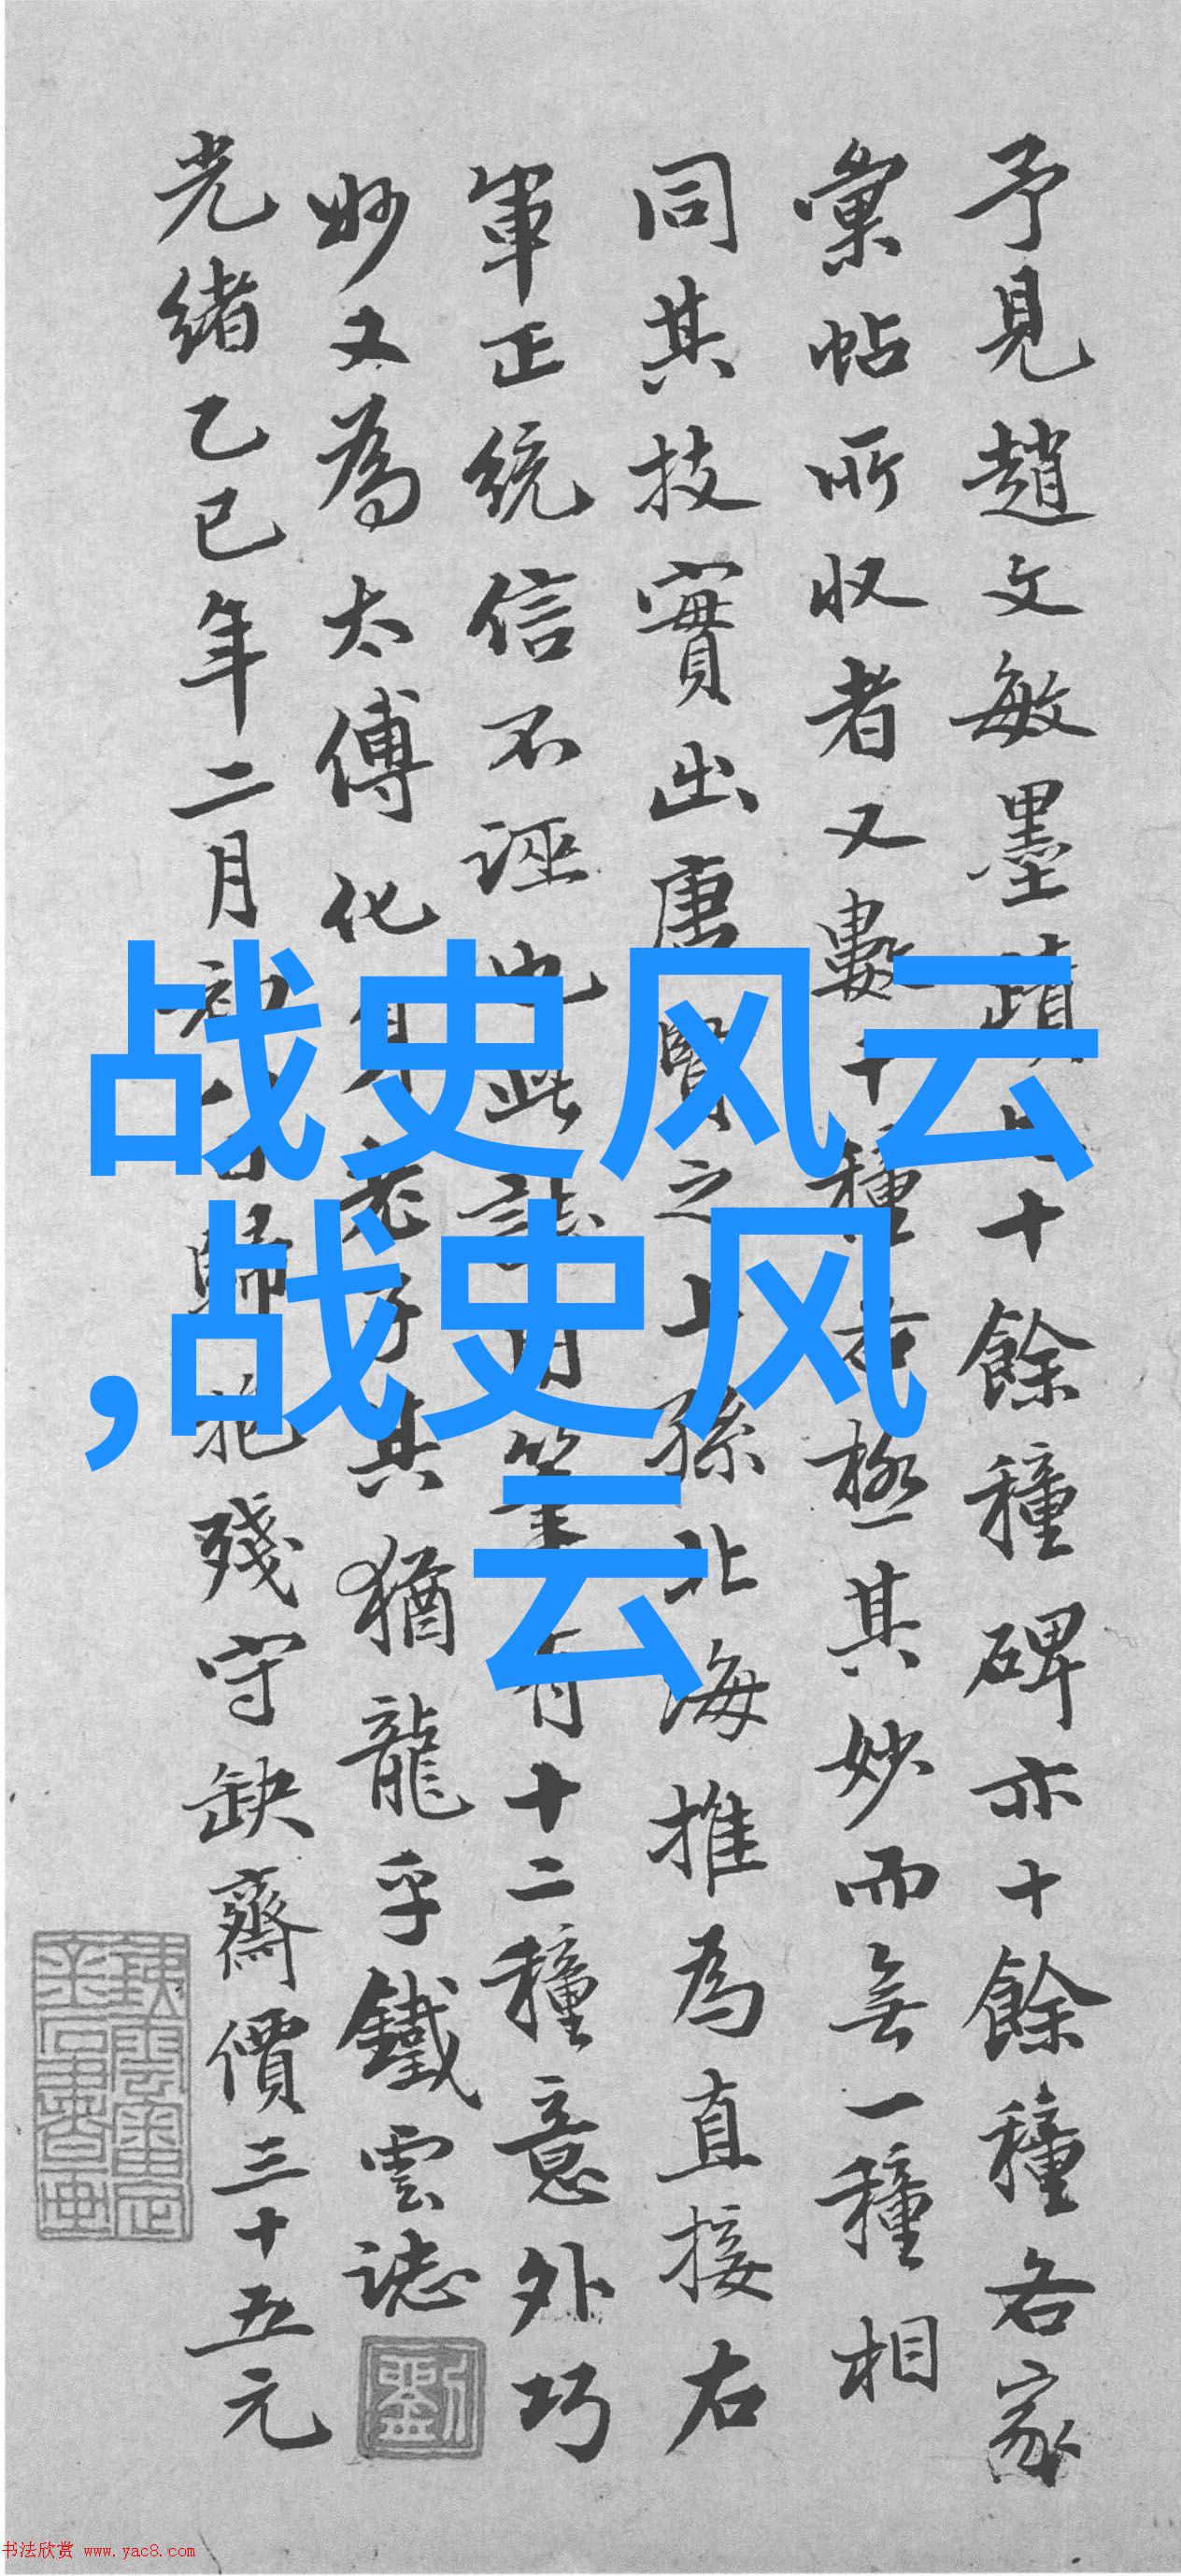 予見趙文敏墨蹟七十餘種碑亦十餘種各家
彙帖所收者又數十種若極其妙而無一種相
同其技實出唐賢之上孫北海推為直接右
軍正統信不誣也此誌用筆有十二種意外巧
妙又為太傅化身老子其猶龍乎鐵雲誌
光緒乙巳年二月初八日歸抱殘守缺齋價三十五元
战史风云
,战史风
云
劉
书法欣赏 www.yac8.com